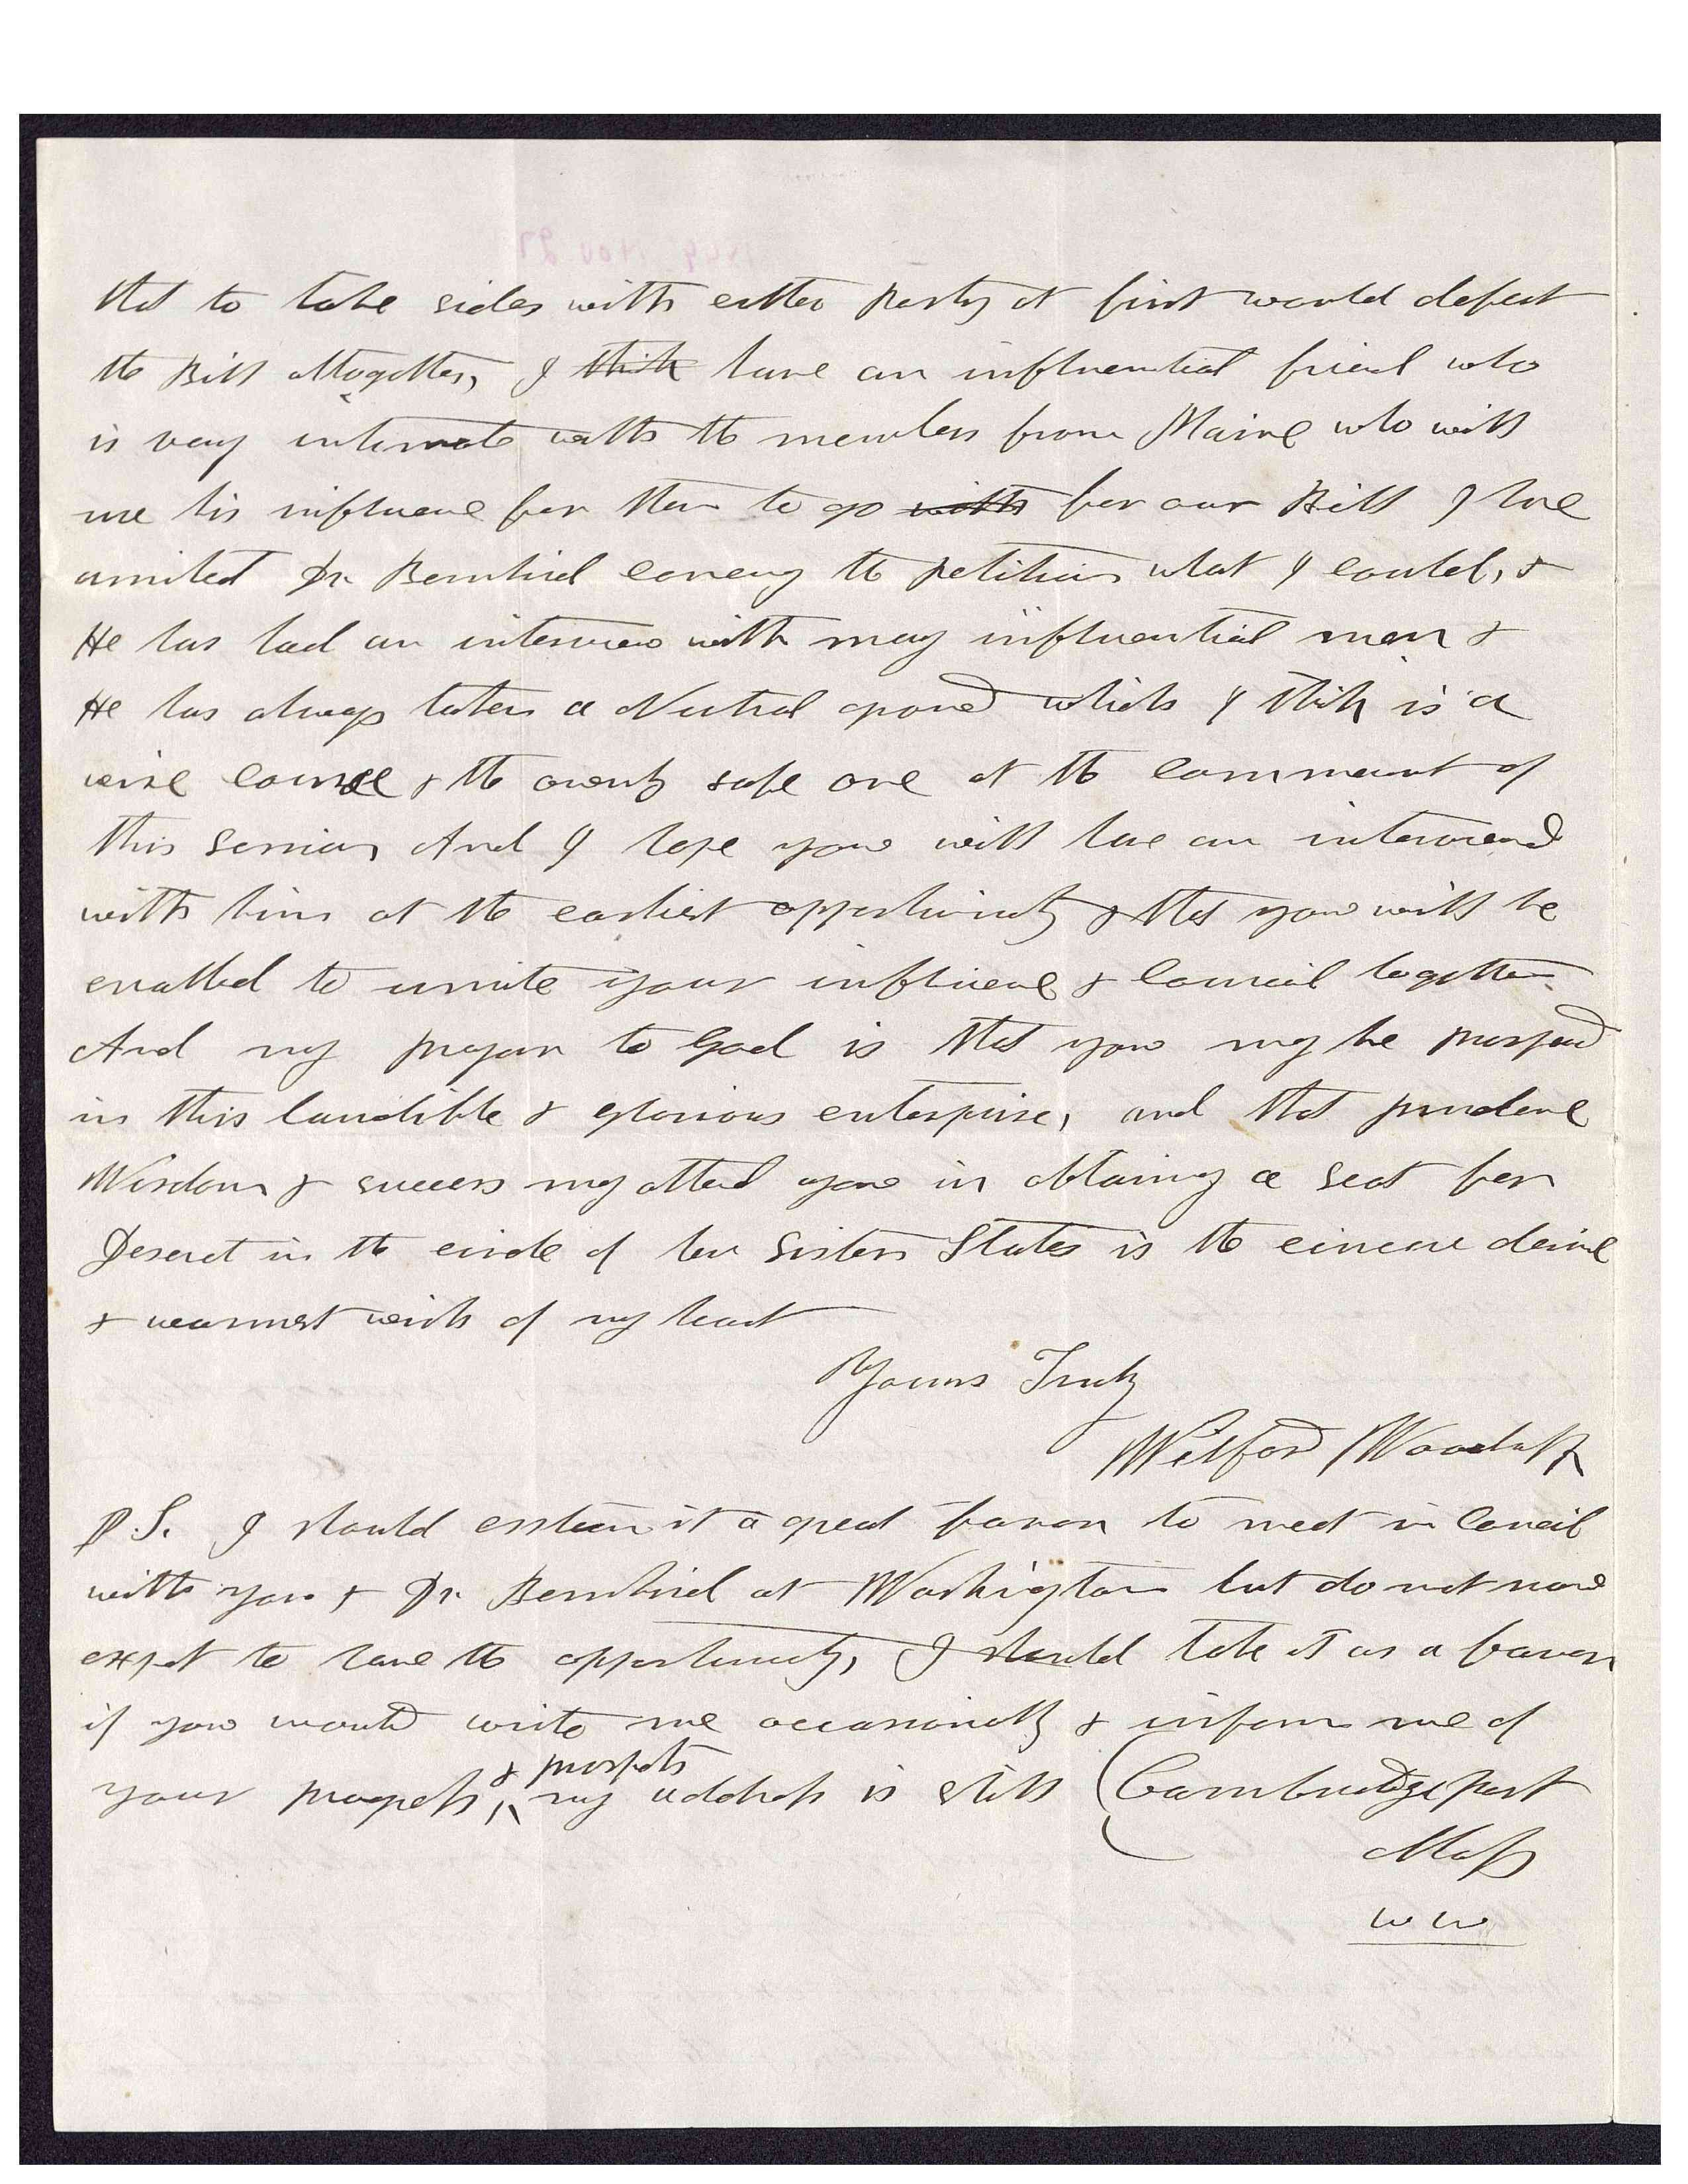 that to take sides with either party at first would defeat
the Bill altogether, I think have an influential friend who
is very intimate with the members from Maine who will
use his influence for them to go with for our Bill I have
assisted Dr. Bernhisel concerng the petition what I could, &
He has had an interview with many influential men &
He has always taken a Neutral ground which I think is a
wise course & the ownly safe one at the commencment of
this session And I hope you will have an interview
with him at the earliest opportunity & that you will be
enabled to unite your influence & Council together.
And my prayer to God is that you may be prospered
in this laudible & glorious enterprise, and that prudence
Wisdom & success may attend you in obtaining a seat for
Deseret in the circle of her Sister States is the cincere desire
& warmest wish of my heart
Yours Truly
Wilford Woodruff
P.S. I should essteem it a great favor to meet in Council
with you & Dr. Bernhisel at Washington but do not now
expet to have the opportunity, I should take it as a favor
if you would write me occasionally & inform me of
your progress, & prospets my address is still (Cambridgeport
Mass
W W